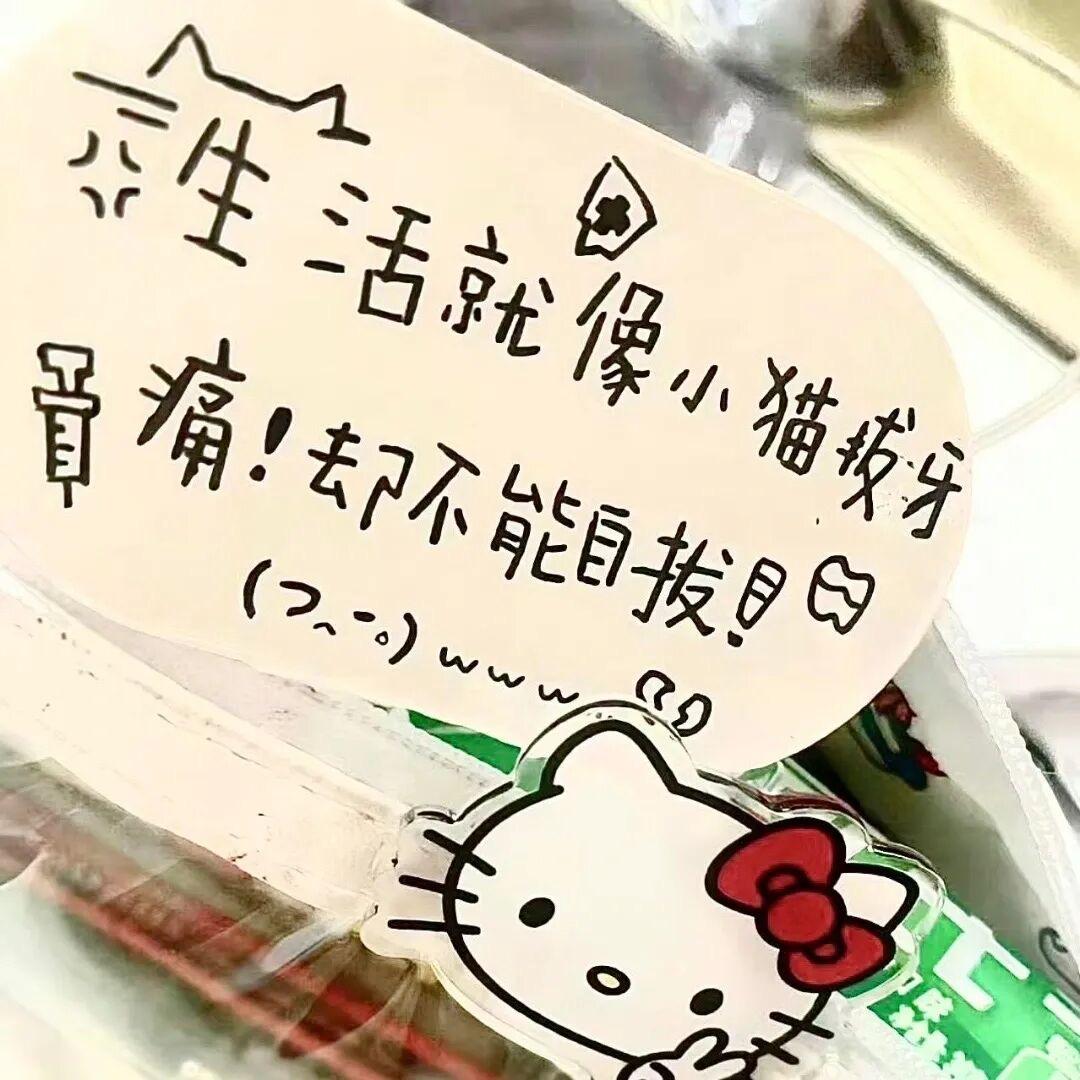 生活就像小猫拔牙
痛！却不能自拔！
(つ、-。)www